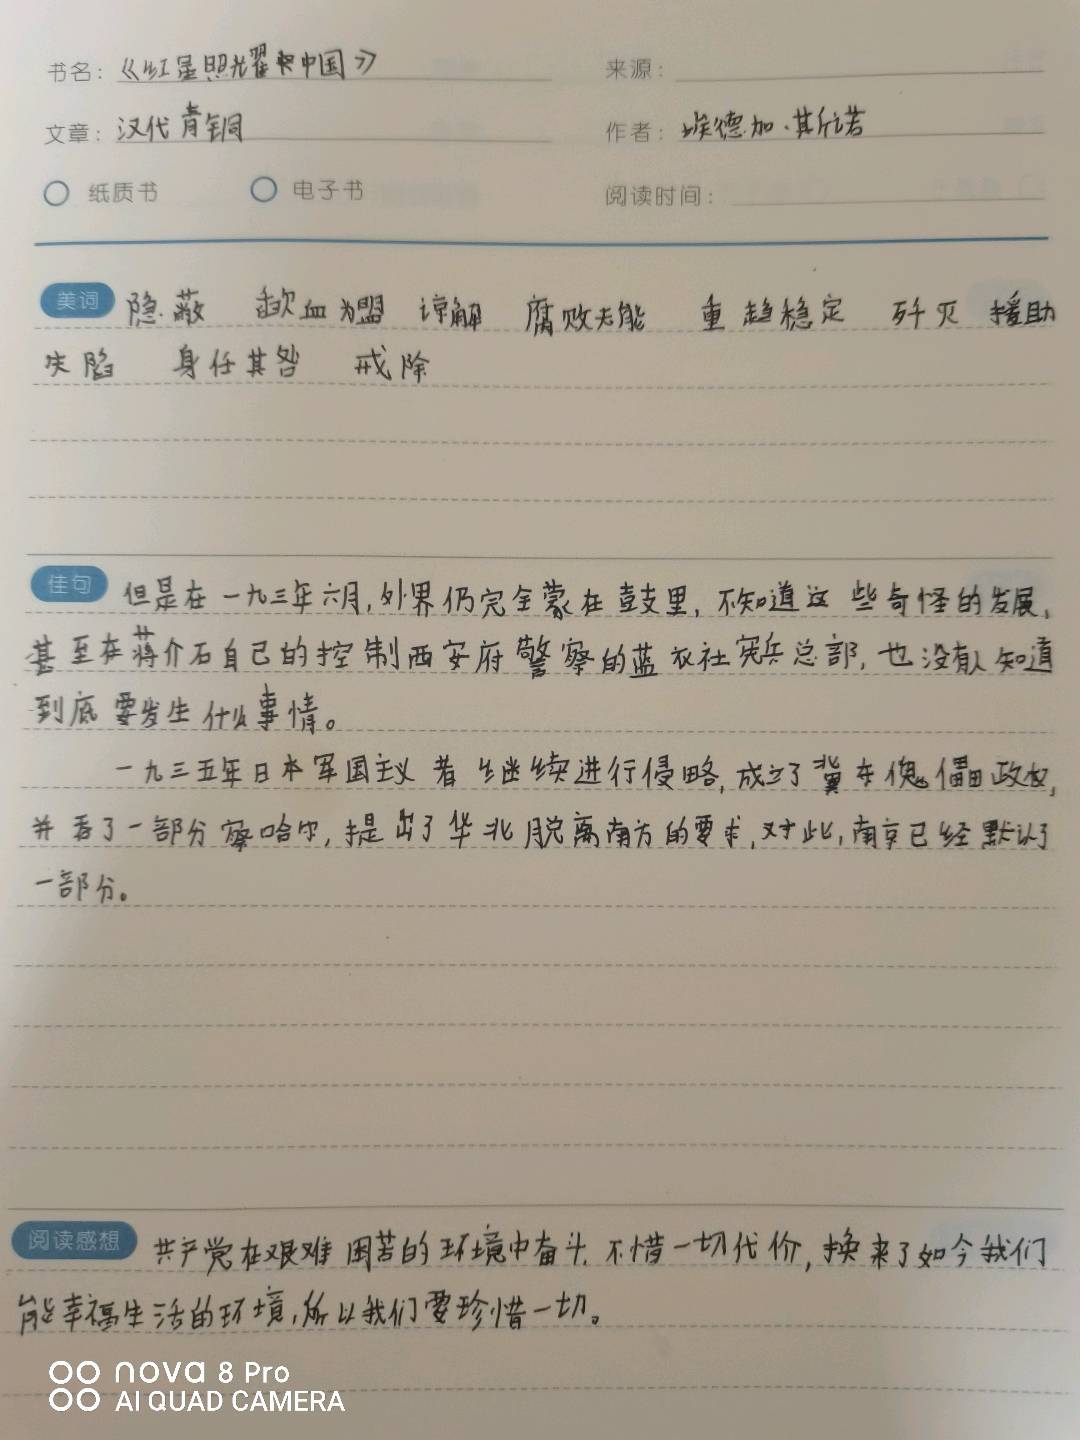 书名：《红星照耀中国》 来源：
文章：汉代青铜 作者：埃德加·斯诺
纸质书 电子书 阅读时间：
美词 隐蔽 歃血为盟 谅解 腐败无能 重趋稳定 歼灭 援助
失陷 身任其咎 戒除
佳句 但是在一九三年六月，外界仍完全蒙在鼓里，不知道这些奇怪的发展，
甚至在蒋介石自己的控制西安府警察的蓝衣社宪兵总部，也没有人知道
到底要发生什么事情。
一九三五年日本军国主义者继续进行侵略，成立了冀东傀儡政权，
并吞了一部分察哈尔，提出了华北脱离南方的要求，对此，南京已经默认了
一部分。
阅读感想 共产党在艰难困苦的环境中奋斗，不惜一切代价，换来了如今我们
能幸福生活的环境，所以我们要珍惜一切。
nova 8 Pro
AI QUAD CAMERA